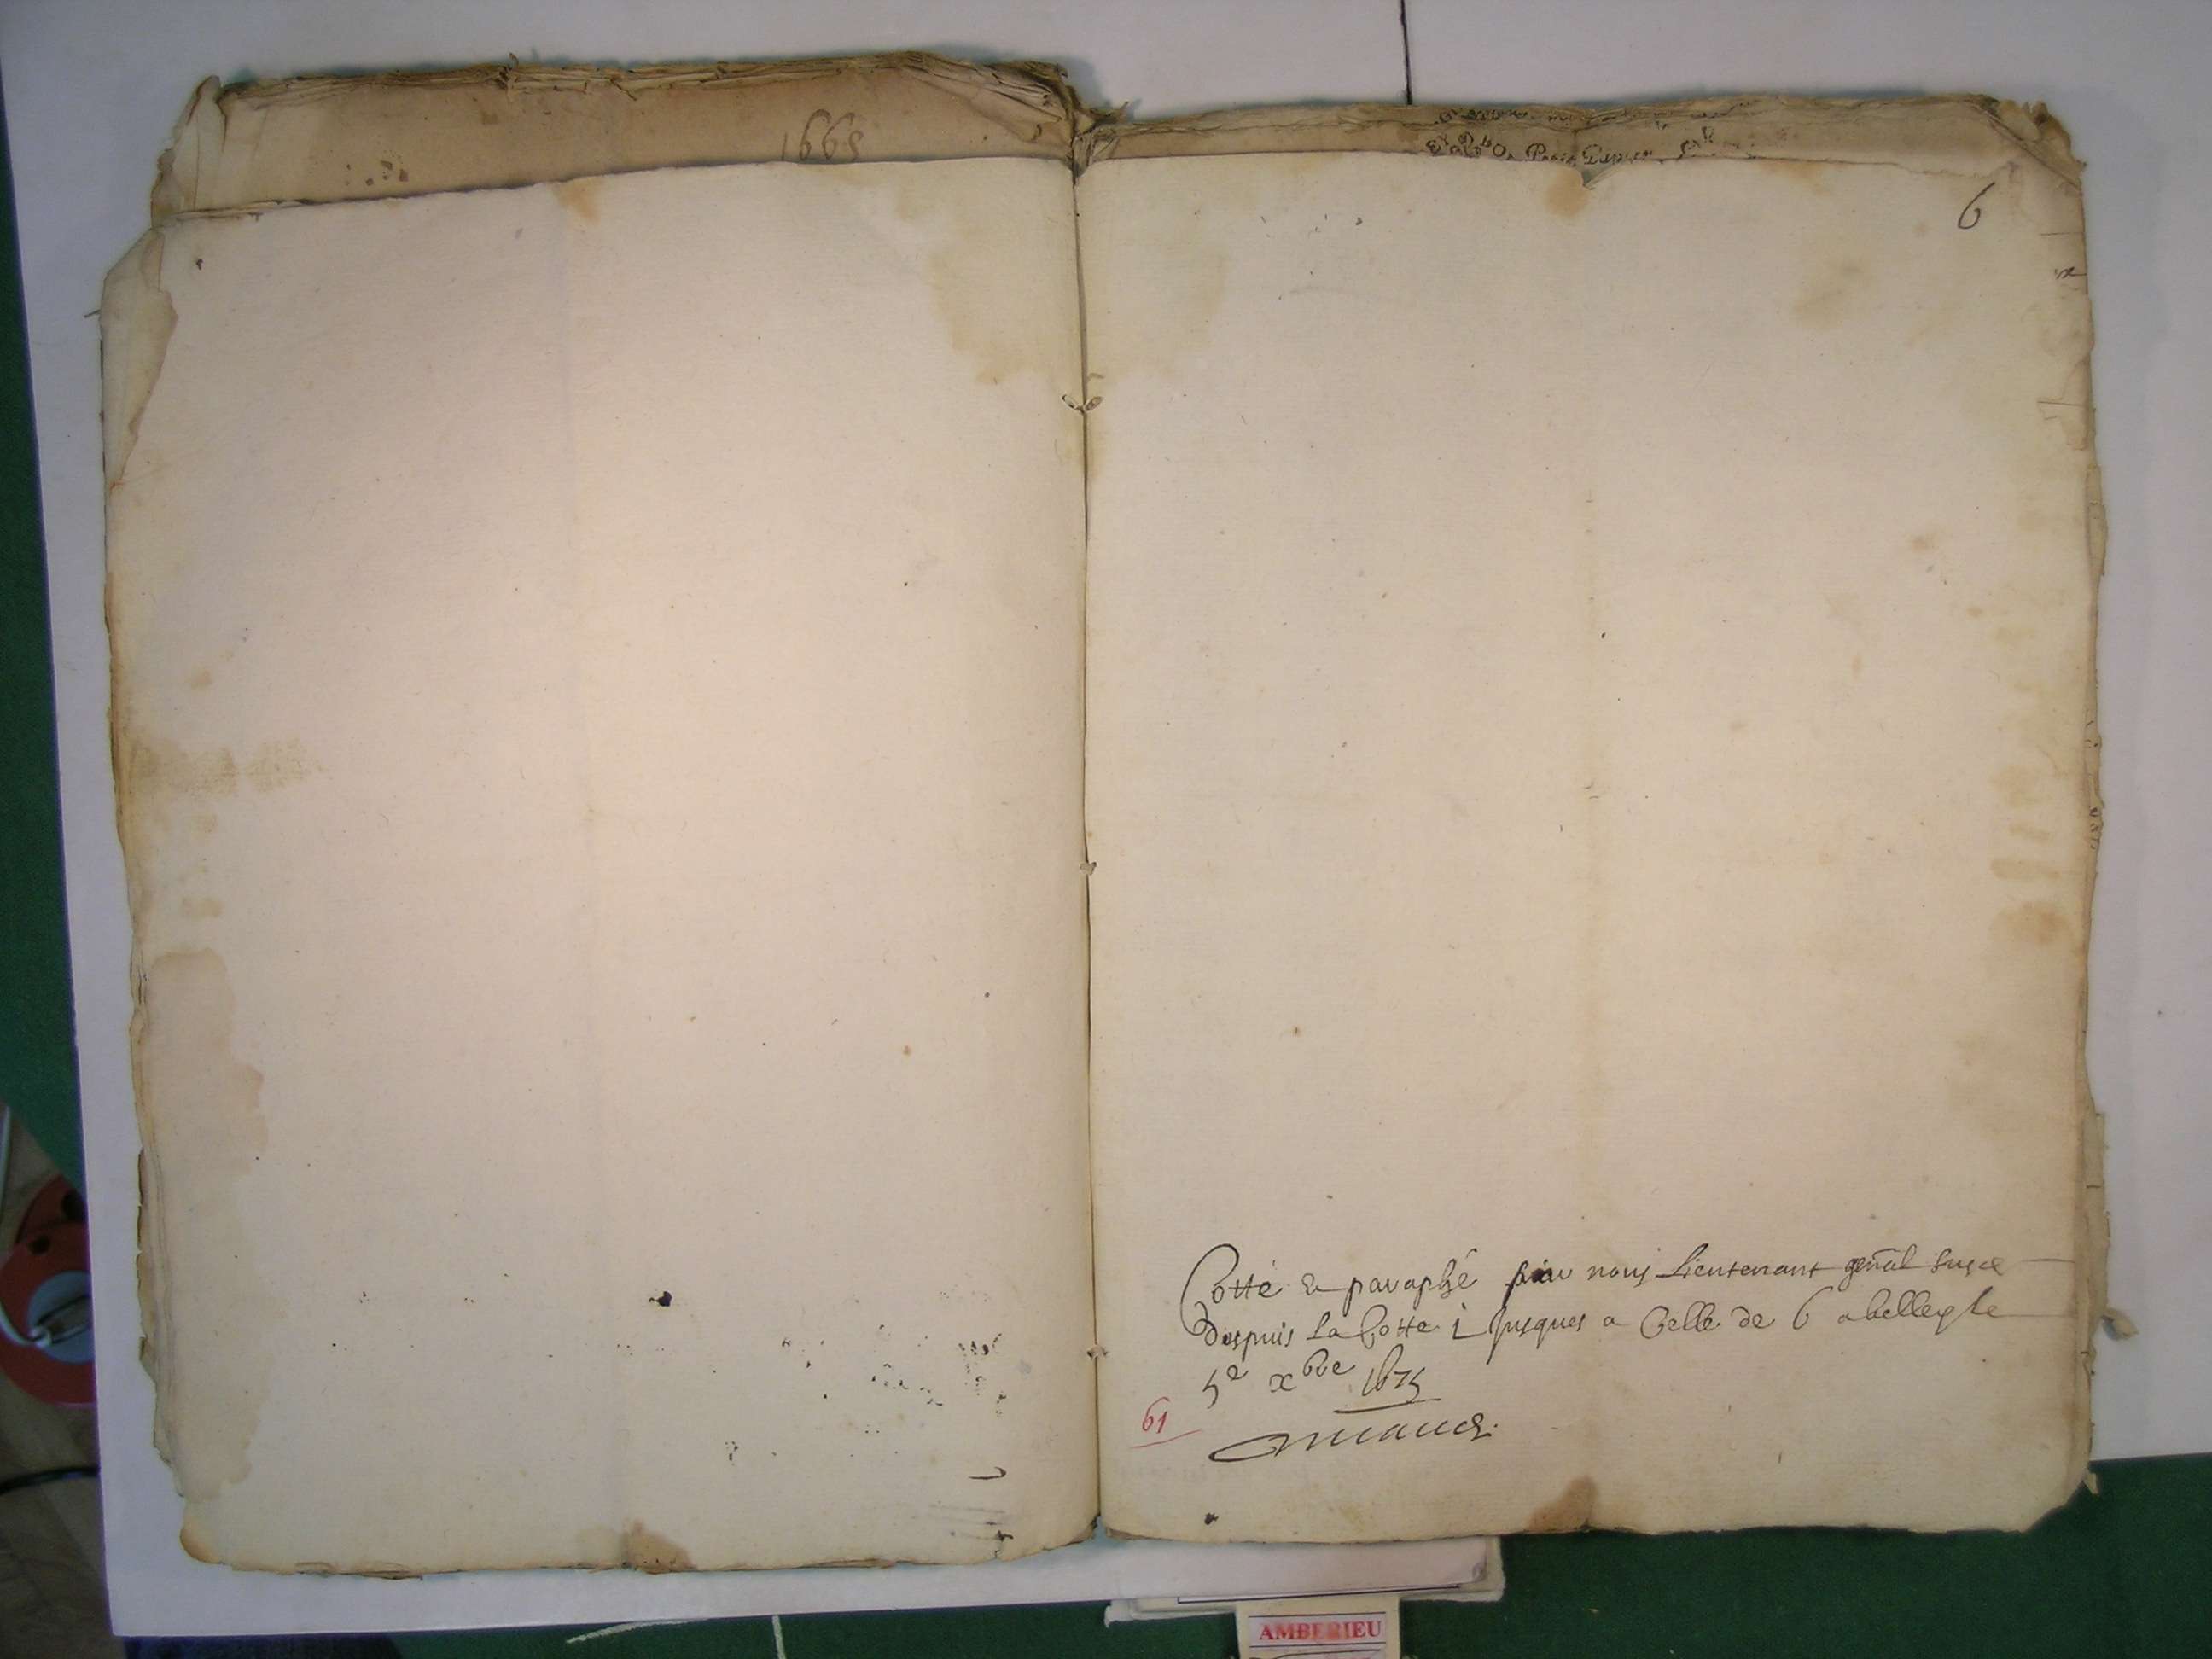 1665
6
Cotté & paraphé par nous Lieutenant gen̄al susd
Despuis la Cotte 1 Jusques a Celle de 6 a belley le
5e xbre 1675
61
AMBERIEU